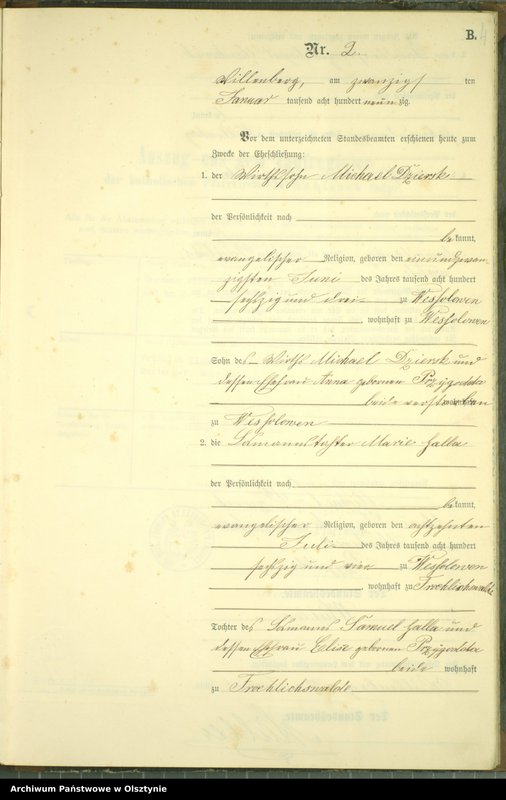 B.
Nr. 2.
Willenberg, am zwanzigsten
Januar tausend acht hundert neunzig.
Vor dem unterzeichneten Standesbeamten erschienen heute zum
Zwecke der Eheschließung:
1. der Wirthssohn Michael Dziersk
der Persönlichkeit nach
bekannt,
evangelischer Religion, geboren den einundzwan
zigsten Juni des Jahres tausend acht hundert
sechzig und drei zu Wessolowen
, wohnhaft zu Wessolowen
Sohn des Wirths Michael Dziersk und
dessen Ehefrau Anna geborenen Przygodda
beide verstorben
zu Wessolowen
2. die Lehmannstochter Marie Halla
der Persönlichkeit nach
bekannt,
evangelischer Religion, geboren den achtzehnten
Juli des Jahres tausend acht hundert
sechzig und vier zu Wessolowen
, wohnhaft zu Froehlichswalde
Tochter des Samuel Halla und
dessen Ehefrau Elise geborenen Przygodda
beide wohnhaft
zu Froehlichswalde
Archiwum Państwowe w Olsztynie